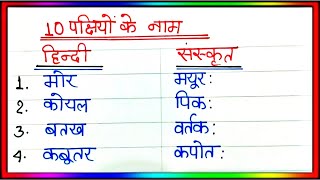 10 पक्षियों के नाम
हिन्दी संस्कृत
1. मोर मयूर:
2. कोयल पिक:
3. बतख वर्तक:
4. कबूतर कपोत: